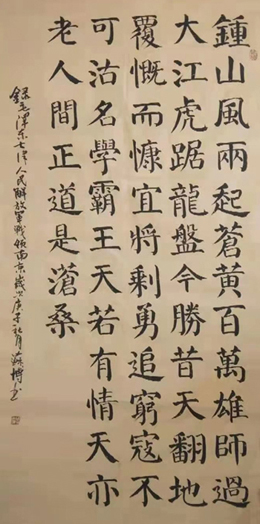 鍾山風雨起蒼黃百萬雄師過
大江虎踞龍盤今勝昔天翻地
覆慨而慷宜將剩勇追窮寇不
可沽名學霸王天若有情天亦
老人間正道是滄桑
錄毛澤东七律人民解放軍戰領南京歲次庚子秋月 博书